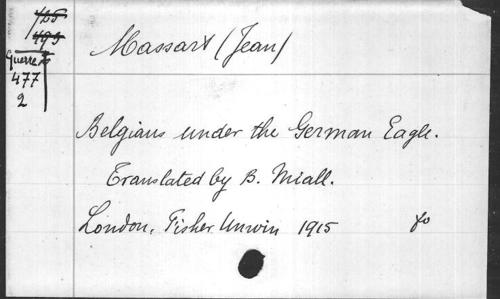 725
493
Guerre
477
2
Massart (Jean)
Belgians under the German Eagle.
Translated by B. Miall.
London, Fisher Unwin 1915